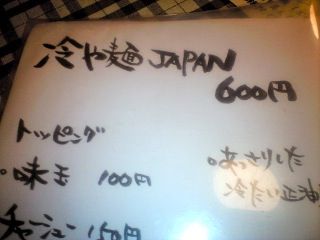 冷や麺 JAPAN
600円
トッピング
・味玉 100円
チャーシュー 150円
・あっさりした
冷たい正油